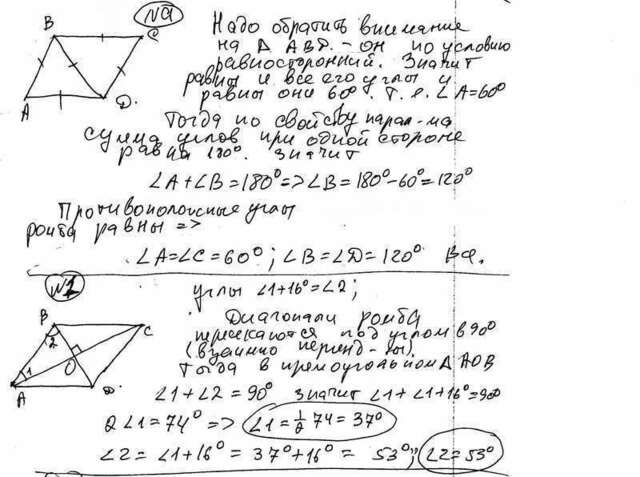 №9
B C A D.
Надо обратить внимание
на Δ ABD. - он по условию
равносторонний. Значит
равны и все его углы и
равны они 60°. Т.е. ∠A=60°
Тогда по свойству парал-ма
сумма углов при одной стороне
равна 180°. значит
∠A+∠B=180° => ∠B=180°-60°=120°
Противоположные углы
ромба равны =>
∠A=∠C=60°; ∠B=∠D=120°
углы ∠1+16°=∠2;
B C 2 1 O A D
Диагонали ромба
пересекаются под углом в 90°
(взаимно перпенд-ны).
Тогда в прямоугольном Δ AOB
∠1+∠2=90° значит ∠1+∠1+16°=90
2∠1=74° => ∠1=½ 74=37°
∠2=∠1+16°=37°+16°=53°; ∠2=53°